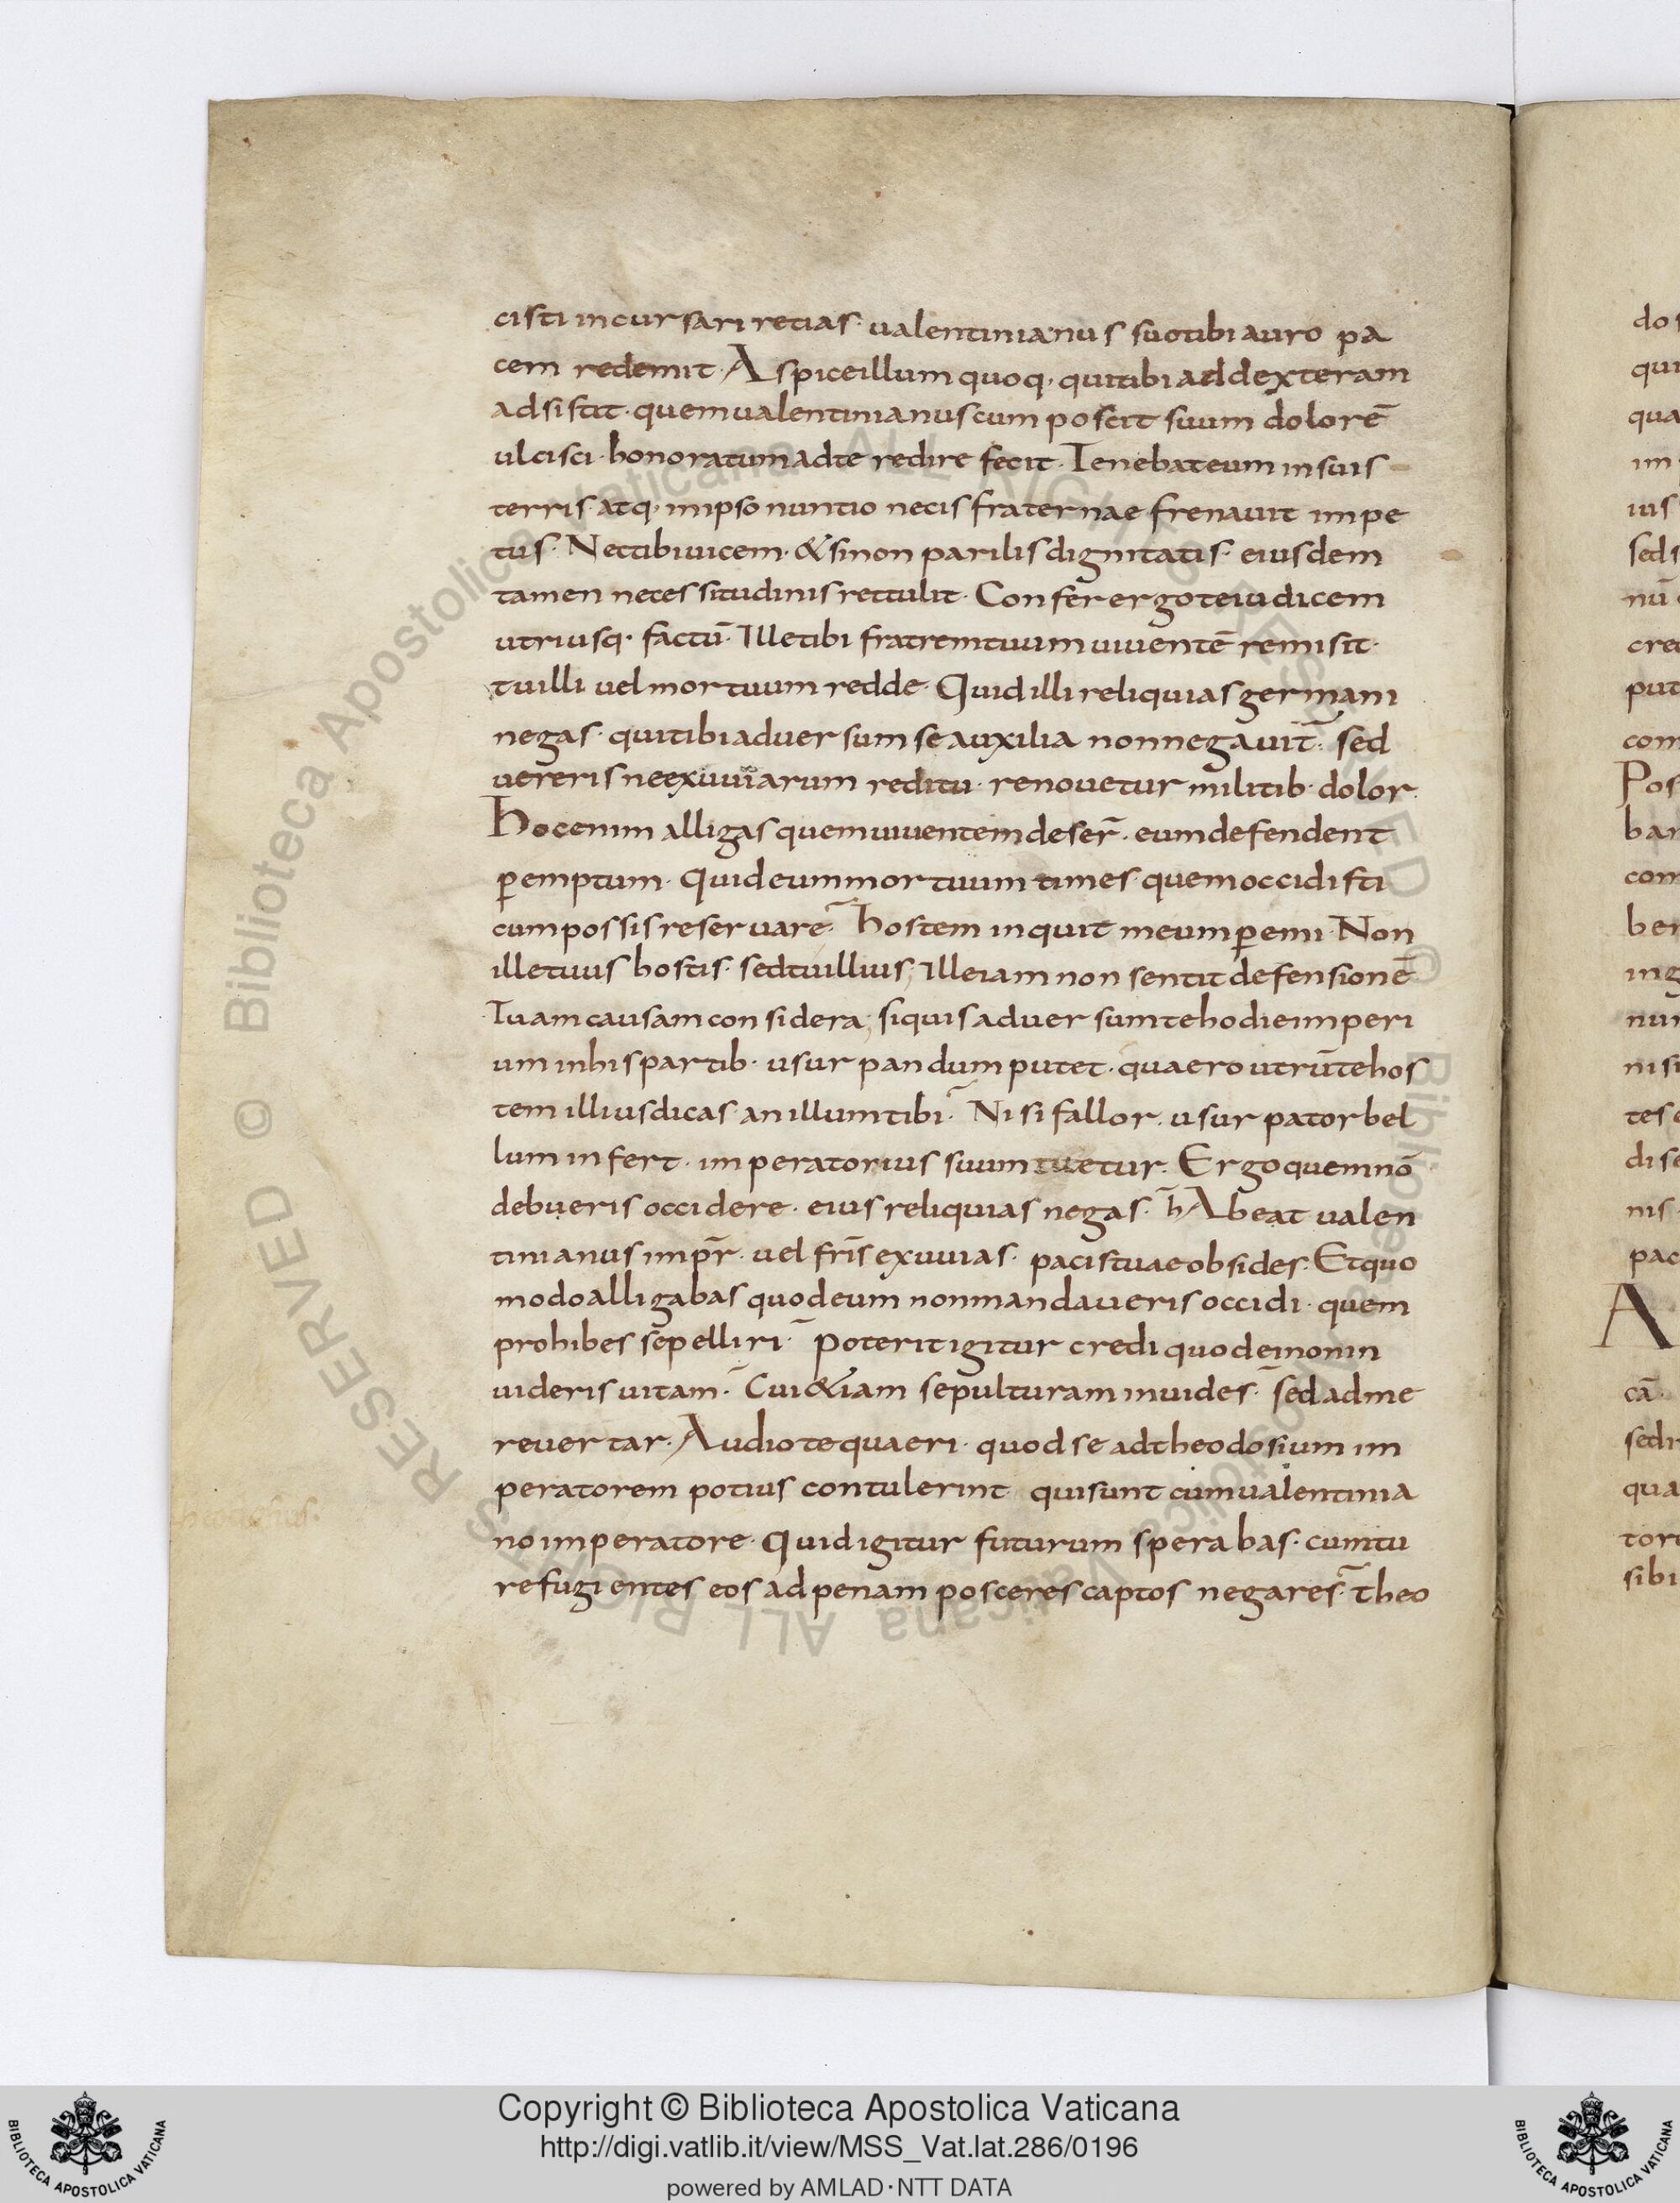 cisti incursari retias· ualentinianus suo tibi auro pa
cem redemit· Aspice illum quoq· qui tibi ad dexteram
adsistit· quem ualentinianus cum poscit suum dolorē
ulcisci· honoratum ad te redire fecit· Tenebat eum in suis
terris· atq· in ipso nuntio necis fraternae frenauit impe
tus· Nec tibi uicem· & si non parilis dignitatis· eiusdem
tamen necessitudinis rettulit· Confer ergo te iudicem
utriusq· factū· Ille tibi fratrem tuum uiuentē remisit·
tu illi uel mortuum redde· Quid illi reliquias germani
negas· qui tibi aduersum se auxilia non negauit· sed
uereris ne exuuiarum reditu· renouetur militib· dolor·
hoc enim alligas quem uiuentem deser̄· eum defendent
p̄emptum· Quid eum mortuum times· quem occidisti
cum possis reseruare· hostem inquit meum p̄emi· Non
ille tuus hostis· sed tu illius; Ille iam non sentit defensionē
Tuam causam considera; si quis aduersum te hodie imperi
um in his partib· usurpandum putet· quaero utrū te hos
tem illius dicas· an illum tibi· Nisi fallor· usurpator bel
lum infert· imperator ius suum tuetur· Ergo quem nō
debueris occidere· eius reliquias negas· hAbeat ualen
tinianus imp̄r· uel fr̄is exuuias· pacis tuae obsides· Et quo
modo alligabas quod eum non mandaueris occidi· quem
prohibes sepelliri· poterit igitur credi quod ei non in
uideris uitam· Cui &iam sepulturam inuides· sed ad me
reuertar· Audio te quaeri· quod se ad theodosium im
peratorem potius contulerint qui sunt cum ualentinia
no imperatore· Quid igitur futurum sperabas· cum tu
refugientes eos ad penam posceres captos negares· theo
do
qui
qua
im
uis
sed s
nū
cre
put
com
Pos
ban
com
ber
ing
nun
nisi
tes
dis
nis
pac
A
cā·
sed
qua
tor
sibi
© Biblioteca Apostolica Vaticana ALL RIGHTS RESERVED
Copyright © Biblioteca Apostolica Vaticana
http://digi.vatlib.it/view/MSS_Vat.lat.286/0196
powered by AMLAD·NTT DATA
BIBLIOTECA APOSTOLICA VATICANA
BIBLIOTECA APOSTOLICA VATICANA